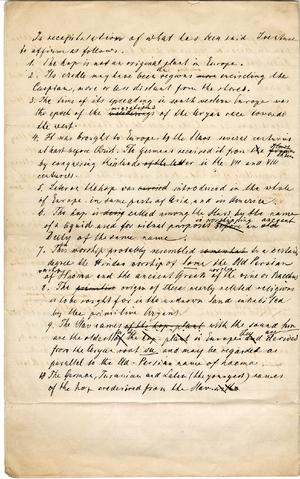 In recapitulation of what has been said I venture
to affirm as follows.
1. The hop is not an original plant in Europe.
2. Its cradle may have been the regions encircling the
Caspian, more or less distant from the shores.
3. The time of its spreading in south western Europe was
the epoch of the migrations of the Aryan race towards
the west.
4. It was brought to Europe by the Slavs several centuries
at least before Christ. The Germans received it from the
by congressing the lands of the latter in the VII and VIII
centuries.
5. Later on the hop was introduced in the whole
of Europe, in some parts of Asia, and in America.
6. The hop is called among the Slavs by the name
of a liquid used for ritual purposes in worshipping an ancient
Deity of the same name.
7. This worship probably resembled to a certain
degree the Hindu worship of Soma the Old Persian
of Haoma and the ancient Greek of the wine or Bacchus
8. The origin of these nearly related religions
is to be sought for in the unknown land inhabited
by the primitive Aryans.
9. The Slav names of the hop plant with the sound
are the oldest of the hop plant in Europe and are derived
from the Aryan root su and may be regarded as
parallel to the Old-Persian name of haoma.
10. The German, Turanian and Latin (the youngest) names
of the hop are derived from the Slav